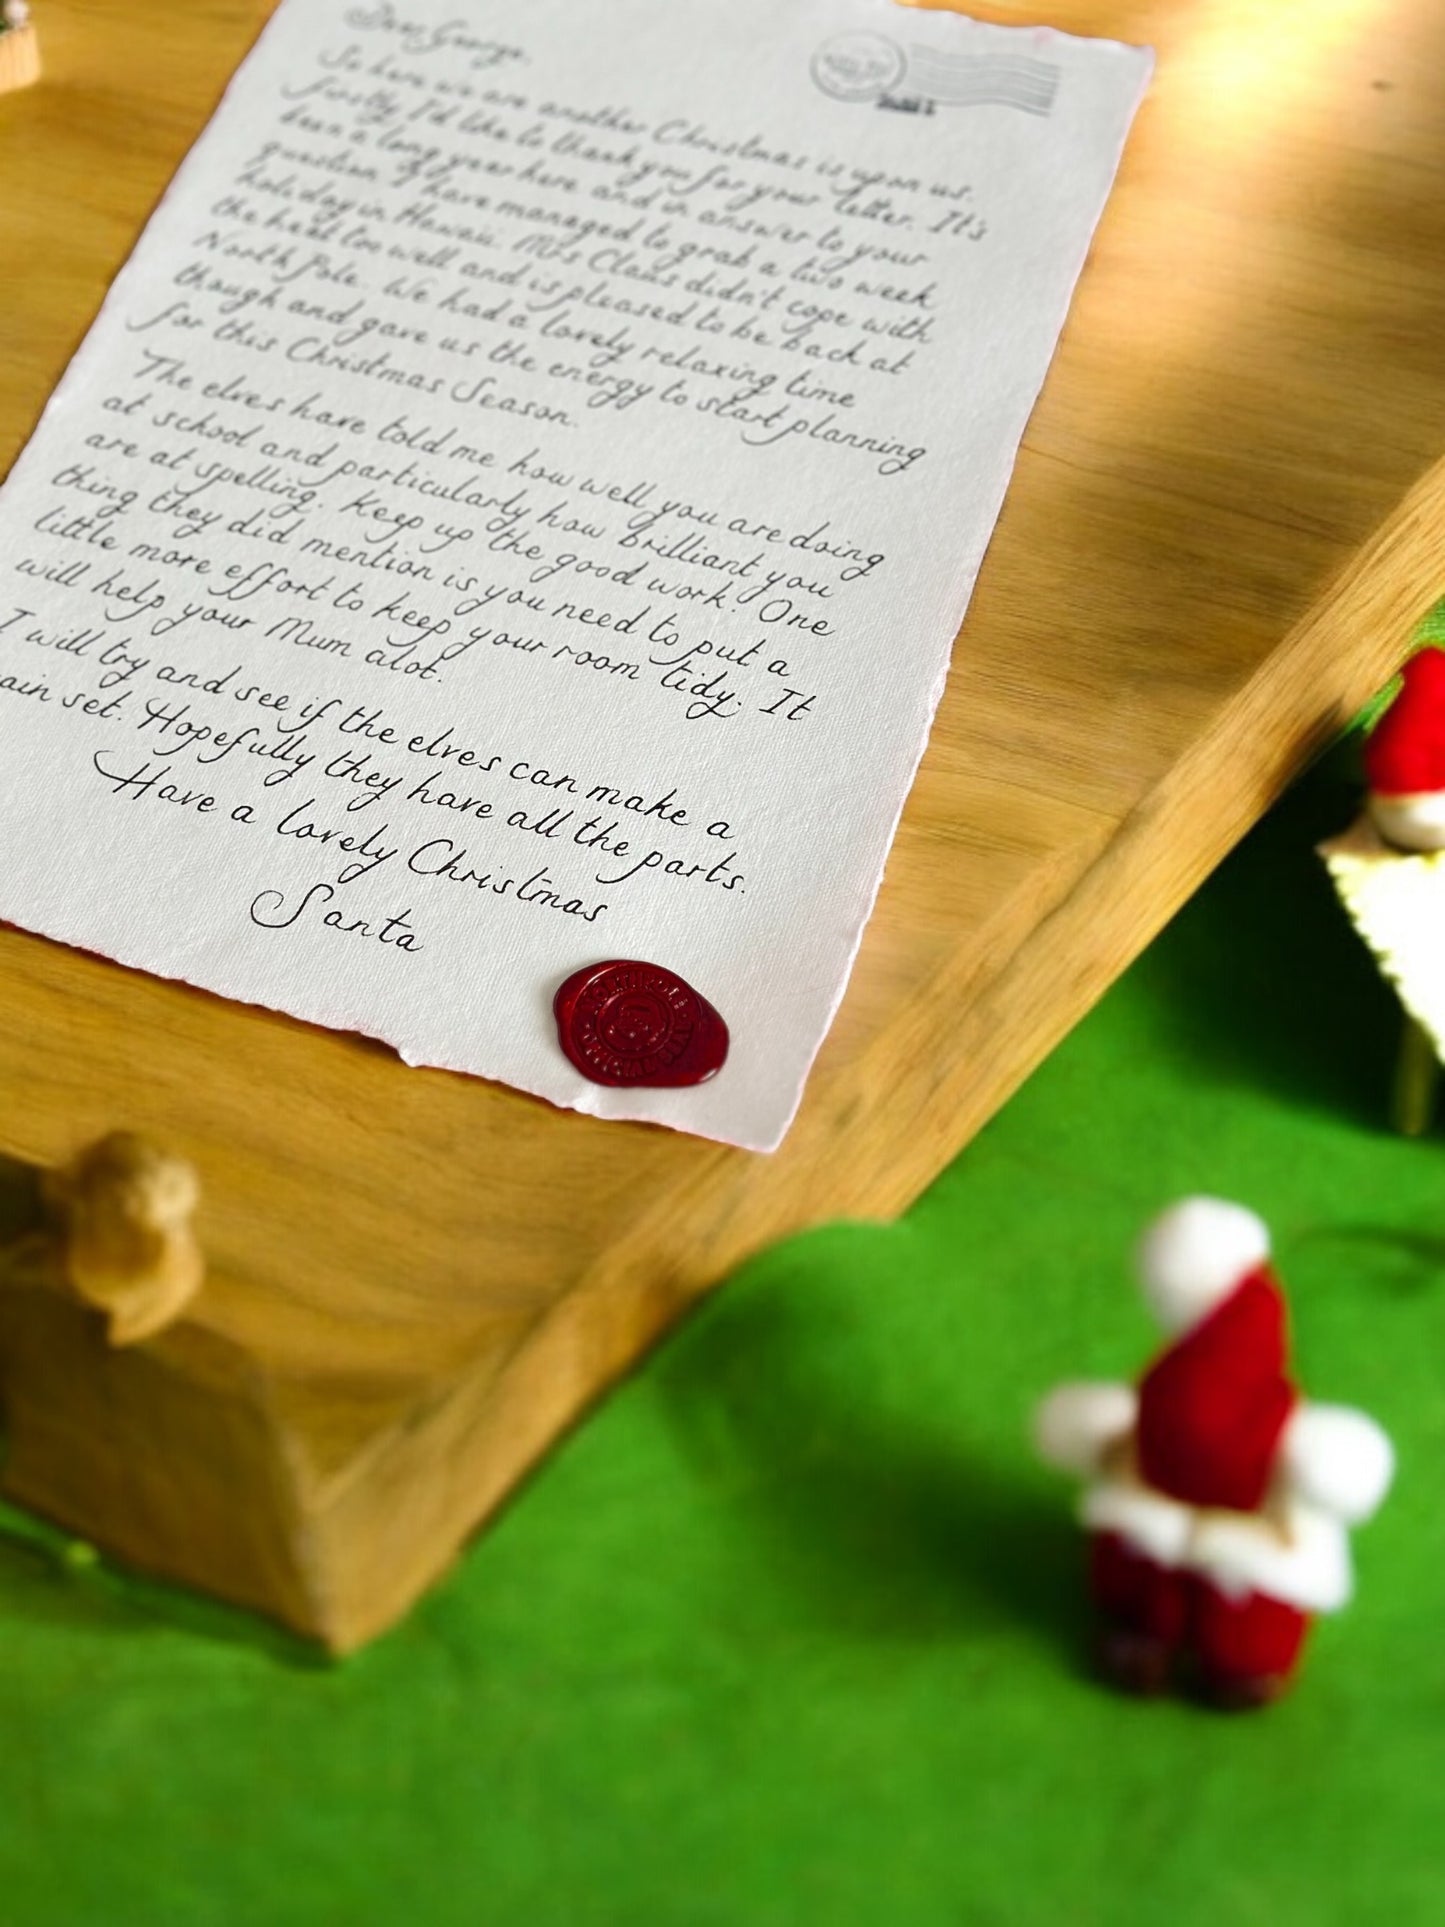 Dear George,
So here we are another Christmas is upon us.
firstly I'd like to thank you for your letter. It's
been a long year here and in answer to your
question I have managed to grab a two week
holiday in Hawaii. Mrs Claus didn't cope with
the heat too well and is pleased to be back at
North Pole. We had a lovely relaxing time
though and gave us the energy to start planning
for this Christmas Season.
The elves have told me how well you are doing
at school and particularly how brilliant you
are at spelling. Keep up the good work. One
thing they did mention is you need to put a
little more effort to keep your room tidy. It
will help your Mum alot.
I will try and see if the elves can make a
ain set. Hopefully they have all the parts.
Have a lovely Christmas
Santa
NORTH POLE
OFFICIAL SEAL